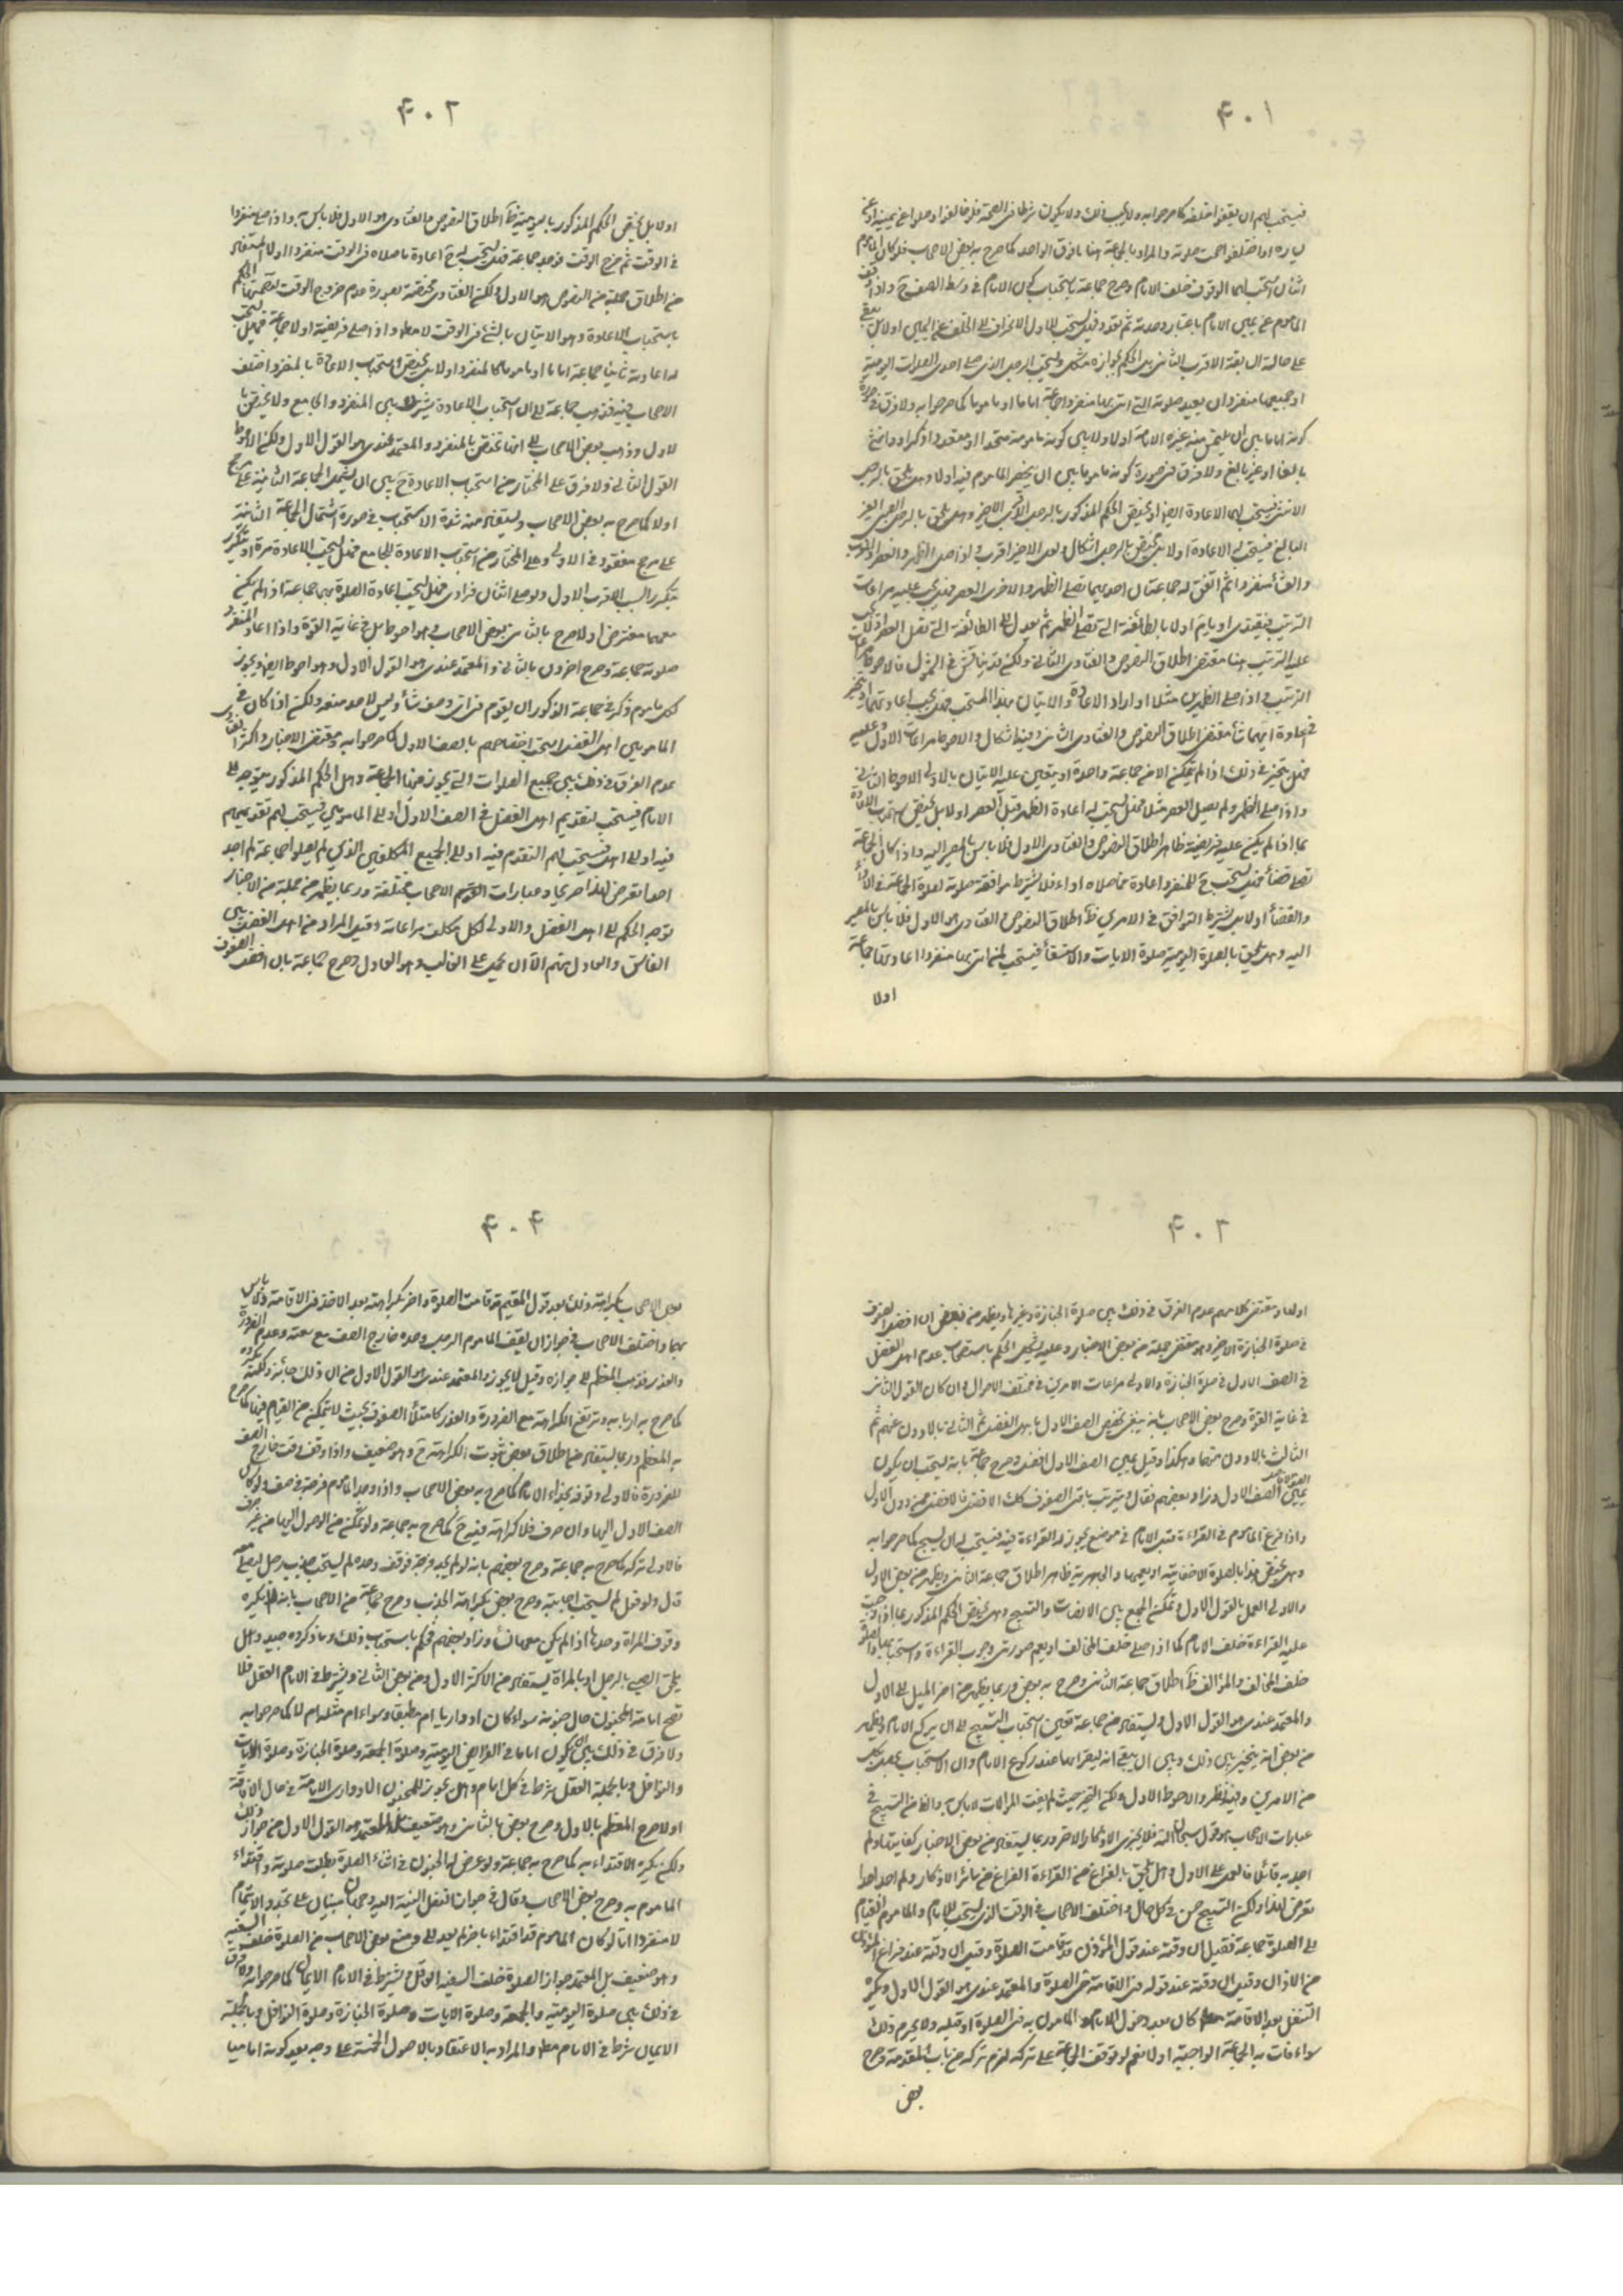 ۴۰۱
فيستحب لهم ان يقفوا خلفه كما صرحوا به ولا يجب ذلك ولا يكون شرطا في الصحة فلو خالفوا وصلوا عن يمينه او عن
يساره او اختلفوا صحت صلوته والمراد بالجماعة هنا ما فوق الواحد كما صرح به بعض الاصحاب فلو كان المأموم
اثنان استحب لهما الوقوف خلف الامام وصرح جماعة باستحباب كون الامام في وسط الصف ح واذا وقف
المأموم عن يمين الامام باعتبار وحدته ثم تعدد فهل يستحب للاول الانحراف الى الخلف عن اليمين اولا بل يبقى
على حالة السابقة الاقرب الثاني بل الحكم بجوازه مشكل ويستحب للرجل الذي صلى احدى الصلوات اليومية
او جميعها منفردا ان يعيد صلوته التي اتى بها منفردا جماعة اماما او مأموما كما صرحوا به ولا فرق في صورة
كونه اماما بين ان
بالغا او غير بالغ ولا فرق في صورة كونه مأموما بين ان ينحصر المأموم فيه اولا وهل يلحق بالرجل
الانثى فيستحب لها الاعادة ايضا او يختص الحكم المذكور بالرجل الاقرب الاخير وهل يلحق بالرجل الصبي الغير
البالغ فيستحب له الاعادة اولا بل يختص بالرجل اشكال ولعل الاخير اقرب ولو صلى الظهر والعصر او المغرب
والعشاء منفردا ثم اتفق له جماعتان احديهما تصلي الظهر والاخرى العصر فهل يجب عليه مراعات
الترتيب فيقتدي او يأتم اولا بالطائفة التي تصلي الظهر ثم يعدل الى الطائفة التي تصلي العصر او لا يجب
عليه الترتيب هنا مقتضى اطلاق النصوص والفتاوى الثاني ولكن قد يناقش في الشمول فالاحوط مراعات
الترتيب واذا صلى الظهرين مثلا واراد الاعادة والاتيان بهذا المستحب فهل يجب اعادتهما او يتخير
في اعادة ايهما شاء مقتضى اطلاق النصوص والفتاوى الثاني وفيه اشكال والاحوط مراعات الاول وعليه
فهل يتخير في ذلك اذا لم يتمكن الا من جماعة واحدة او يتعين عليه الاتيان بالاولى الاحوط الثاني
واذا صلى الظهر ولم يصل العصر مثلا فهل يستحب له اعادة الظهر قبل العصر اولا بل يختص استحباب الاعادة
بما اذا لم يكن عليه فريضة ظاهر اطلاق النصوص والفتاوى الاول فلا باس بالمصير اليه واذا كان الجماعة
تصلي قضاء فهل يستحب ح للمنفرد اعادة ما صلاه اداء فلا يشترط موافقة صلوته لصلوة الجماعة في الاداء
والقضاء اولا بل يشترط التوافق في الامرين ظ اطلاق النصوص والفتاوى هو الاول فلا باس بالمصير
اليه وهل يلحق بالصلوة اليومية صلوة الايات والاستسقاء فيستحب لمن اتى بها منفردا اعادتها جماعة
اولا
۴۰۲
اولا بل يختص الحكم المذكور باليومية ظ اطلاق النصوص والفتاوى هو الاول فلا باس به واذا صلى منفردا
في الوقت ثم خرج الوقت فوجد جماعة فهل يستحب له ح اعادة ما صلاه في الوقت منفردا اولا المستفاد
من اطلاق جملة من النصوص هو الاول ولكن الفتاوى مختصة بصورة عدم خروج الوقت لتضمنها الحكم
باستحباب الاعادة وهو الاتيان بالشئ في الوقت لا مطلقا واذا صلى فريضة اولا جماعة فهل يستحب
له اعادته ثانيا جماعة اماما او مأموما كالمنفرد اولا بل يختص استحباب الاعادة بالمنفرد اختلف
الاصحاب فيه فذهب جماعة الى ان استحباب الاعادة يشترك بين المنفرد والجامع ولا يختص با
لاول وذهب بعض الاصحاب الى انها تختص بالمنفرد والمعتمد عندي هو القول الاول ولكن الاحوط
القول الثاني ولا فرق على المختار من استحباب الاعادة ح بين ان يشتمل الجماعة الثانية على مرجح
اولا كما صرح به بعض الاصحاب ويستفاد منه شدة الاستحباب في صورة اشتمال الجماعة الثانية
على مرجح مفقود في الاولى وعلى المختار من استحباب الاعادة للجامع فهل يستحب الاعادة مرة او يتكرر
بتكرر السبب الاقرب الاول ولو صلى اثنان فرادى فهل يستحب اعادة الصلوة بهما جماعة اذا لم يكن
معهما مفترض اولا صرح بالثاني بعض الاصحاب وهو احوط بل في غاية القوة واذا اعاد المنفرد
صلوته جماعة وصرح اخرون بالثاني والمعتمد عندي هو القول الاول وهو احوط ايضا ويجوز
لكل مأموم ذكر في جماعة الذكور ان يقوم في اي صف شاء وليس لاحد منعه ولكن اذا كان في
المأمومين اهل الفضل استحب اختصاصهم بالصف الاول كما صرحوا به ومقتضى الاخبار واكثر الفتاوى
عدم الفرق في ذلك بين جميع الصلوات التي يجوز فيها الجماعة وهل الحكم المذكور يتوجه الى
الامام فيستحب له تقديم اهل الفضل في الصف الاول او الى المأمومين فيستحب لهم تقديمهم
فيه او الى اهل الفضل فيستحب لهم التقدم فيه او الى الجميع المكلفين الذين لم يصلوا جماعة لم اجد
احدا تعرض لهذا صريحا وعبارات القوم الاصحاب مختلفة وربما يظهر من جملة من الاخبار
توجه الحكم الى اهل الفضل والاولى لكل مكلف مراعاته وقيل المراد من اهل الفضل يعم
الفاسق والعادل منهم الا ان يحمل على الغالب وهو العادل وصرح جماعة بان افضل الصفوف
۴۰۳
اولها ومقتضى كلامهم عدم الفرق في ذلك بين صلوة الجنازة وغيرها ويظهر من بعض ان افضل الصفوف
في صلوة الجنازة الاخير وهو مقتضى جملة من بعض الاخبار وعليه يشكل الحكم باستحباب عدم اهل الفضل
في الصف الاول في صلوة الجنازة والاولى مراعات الامرين في مختلف الاحوال وان كان القول الثاني
في غاية القوة وصرح بعض الاصحاب بانه ينبغي تخصيص الصف الاول باهل الفضل ثم الثاني بالادون منهم ثم
الثالث بالادون منهما وهكذا وقيل يمين الصف الاول افضل وصرح جماعة بانه يستحب ان يكون
يمين الصف الاول وزاد بعضهم فقال ويترتب باقي الصفوف كذلك الافضل فالافضل
واذا فرغ المأموم في القراءة قبل الامام في موضع يجوز له القراءة فيه فيستحب له ان يسبح كما صرحوا به
وهل يختص هذا بالصلوة الاخفاتية او يعمها والجهرية ظاهر اطلاق جماعة الثاني ويظهر من بعض الاول
والاولى العمل بالقول الاول ويمكن الجمع بين الانصات والتسبيح وهل يختص الحكم المذكور بما اذا وجبت
عليه القراءة خلف الامام كما اذا صلى خلف المخالف او يعم صورتي وجوب القراءة واستحبابها
خلف المخالف والمؤالف ظ اطلاق جماعة الثاني وصرح به بعض وربما يظهر من اخر الميل الى الاول
والمعتمد عندي هو القول الاول ويستفاد من جماعة تعين استحباب التسبيح الى ان يركع الامام ويظهر
من بعض انه يتخير بين ذلك وبين ان يبقي اية ليقرأها عند ركوع الامام وان الاستحباب يحصل بكل
من الامرين وفيه نظر والاحوط الاول ولكن التخيير حيث لم يفت الموالات لا باس به والظ من التسبيح في
عبارات الاصحاب هو قول سبحان الله فلا يجزي الاذكار الاخر وربما يستفاد من بعض الاخبار كفايتها ولم
اجد به قائلا فالعمل على الاول وهل يلحق بالفراغ من القراءة الفراغ من سائر الاذكار ولم اجد احدا
تعرض لهذا ولكن التسبيح حسن في كل حال واختلف الاصحاب في الوقت الذي يستحب للامام والمأموم القيام
الى الصلوة جماعة فقيل ان وقته عند قول المؤذن قد قامت الصلوة وقيل ان وقته عند فراغ المؤذن
من الاذان وقيل ان وقته عند قوله في الاقامة حي على الصلوة والمعتمد عندي هو القول الاول ويكره
التنفل بعد الاقامة كان بعد دخول الامام والمأموم به في الصلوة او قبله ولا يحرم ذلك
سواء فات به الجماعة الواجبة اولا نعم لو توقف الجماعة على تركه لزم تركه من باب المقدمة وصرح
بعض
۴۰۴
بعض الاصحاب بكراهة ذلك بعد قول المقيم قد قامت الصلوة واخر بكراهته بعد الاخذ في الاقامة ولا باس
بهما واختلف الاصحاب في جواز ان يقف المأموم الرجل وحده خارج الصف مع سعته وعدم الضرورة
والعذر فذهب المعظم الى جوازه وقيل لا يجوز والمعتمد عندي هو القول الاول من ان ذلك جائز ولكنه يكره
كما صرح به اربابه وترتفع الكراهة مع الضرورة والعذر كامتلاء الصفوف بحيث لا يتمكن من القيام فيها كما صرح
به المعظم وربما يستفاد من اطلاق بعض ثبوت الكراهة ح وهو ضعيف واذا وقف وقت خارج الصف
للضرورة فالاولى وقوفه بحذاء الامام كما صرح به بعض الاصحاب واذا وجد المأموم فرجة في صف ولو كان
الصف الاول
فالاولى تركه كما صرح به جماعة وصرح بعضهم بانه لو لم يجد فرجة فوقف وحده لم يستحب جذب رجل ليصلي معه
قال ولو فعل لم يستحب اجابته وصرح بعض بكراهة الجذب وصرح جماعة من الاصحاب بانه لا يكره
وقوف المرأة وحدها اذا لم يكن معها نساء وزاد بعضهم فحكم باستحباب ذلك وما ذكروه جيد وهل
يلحق الصبي بالرجل او بالمرأة يستفاد من الاكثر الاول ومن بعض الثاني ويشترط في الامام العقل فلا
تصح امامة المجنون حال جنونه سواء كان ادواريا ام مطبقا وسواء ام مثله ام لا كما صرحوا به
ولا فرق في ذلك بين ان يكون اماما في الفرائض اليومية وصلوة الجمعة وصلوة الجنازة وصلوة الايات
والنوافل وبالجملة العقل شرط في كل امام وهل يجوز للمجنون الادواري الامامة في حال الافاقة
اولا صرح المعظم بالاول وصرح بعض بالثاني وهو ضعيف بل المعتمد هو القول الاول من جواز ذلك
ولكن يكره الاقتداء به كما صرح به جماعة ولو عرض له الجنون في اثناء الصلوة بطلت صلوته واقتداء
المأموم به وصرح بعض الاصحاب وقال في جواز نقل النية اليه وجهان مبنيان على تجدد الايتمام
لا منفردا اما لو كان المأموم قد اقتداء باخر لم يعد اليه ومنع بعض الاصحاب من الصلوة خلف السفيه
وهو ضعيف بل المعتمد جواز الصلوة خلف السفيه العاقل ويشترط في الامام الايمان كما صرحوا به ولا فرق
في ذلك بين صلوة اليومية والجمعة وصلوة الايات وصلوة الجنازة وصلوة النوافل وبالجملة
الايمان شرط في الامام مطلقا والمراد به الاعتقاد بالاصول الخمسة على وجه يعد كونه اماميا